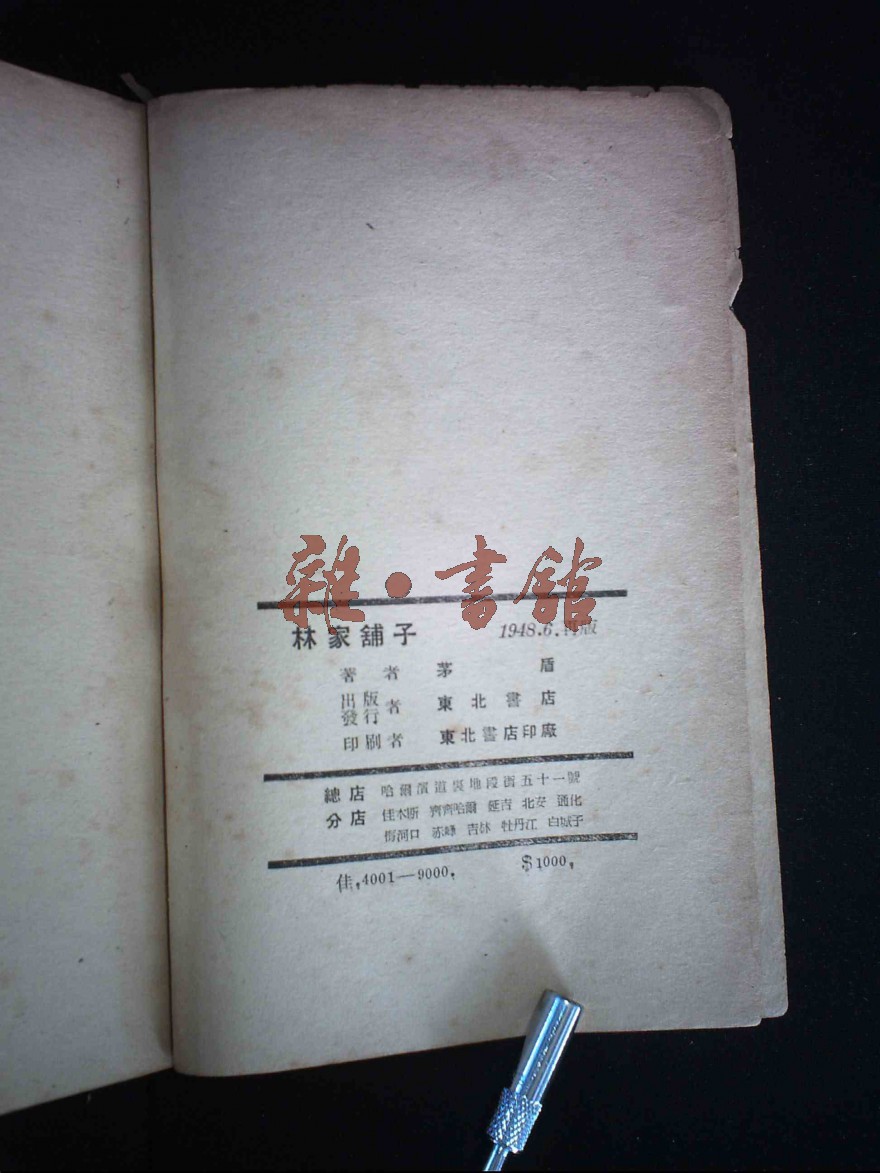 雜·書館
林家舖子 1948.6.再版
著者 茅盾
出版
發行者 東北書店
印刷者 東北書店印廠
總店 哈爾濱道裏地段街五十一號
分店 佳木斯 齊齊哈爾 延吉 北安 通化
梅河口 赤峰 吉林 牡丹江 白城子
佳,4001—9000. $1000,